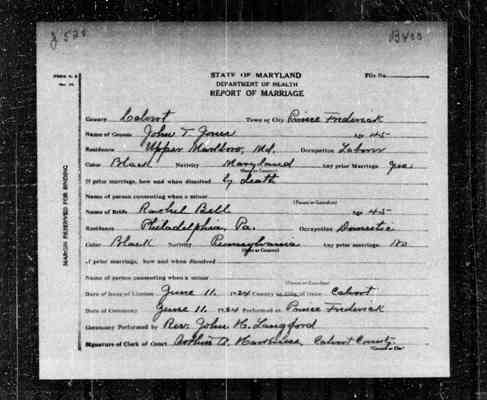 J 520
B400
STATE OF MARYLAND
DEPARTMENT OF HEALTH
REPORT OF MARRIAGE
File No.
County Calvert Town or City Prince Frederick
Name of Groom John T. Jones age 45
Residence Upper Marlboro, Md. Occupation Laborer
Color Black Nativity Maryland Any prior Marriage Yes
(State or Country)
If prior marriage, how and when dissolved by death
Name of person consenting when a minor
(Parent or Guardian)
Name of Bride Rachel Bell Age 45
Residence Philadelphia, Pa. Occupation Domestic
Color Black Nativity Pennsylvania Any prior marriage No
(State or Country)
If prior marriage, how and when dissolved
Name of person consenting when a minor
(Parent or Guardian)
Date of Issue of License June 11. 1924 County or City of Issue Calvert
Date of Ceremony June 11. 1924 Performed at Prince Frederick
Ceremony Performed by Rev. John H. Langford
Signature of Clerk of Court Arthur W. Calvert County.
(County or City)
MARGIN RESERVED FOR BINDING